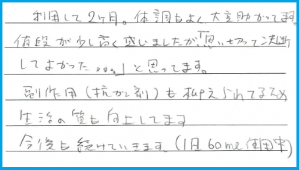 利用して2ヶ月。体調もよく大変助かってます。
値段が少し高く感じましたが『思い切って決断
してよかった。。。』と思ってます。
副作用(抗がん剤)も押えられてるため
生活の質も向上してます
今後も続けていきます。(1月60ml使用中)